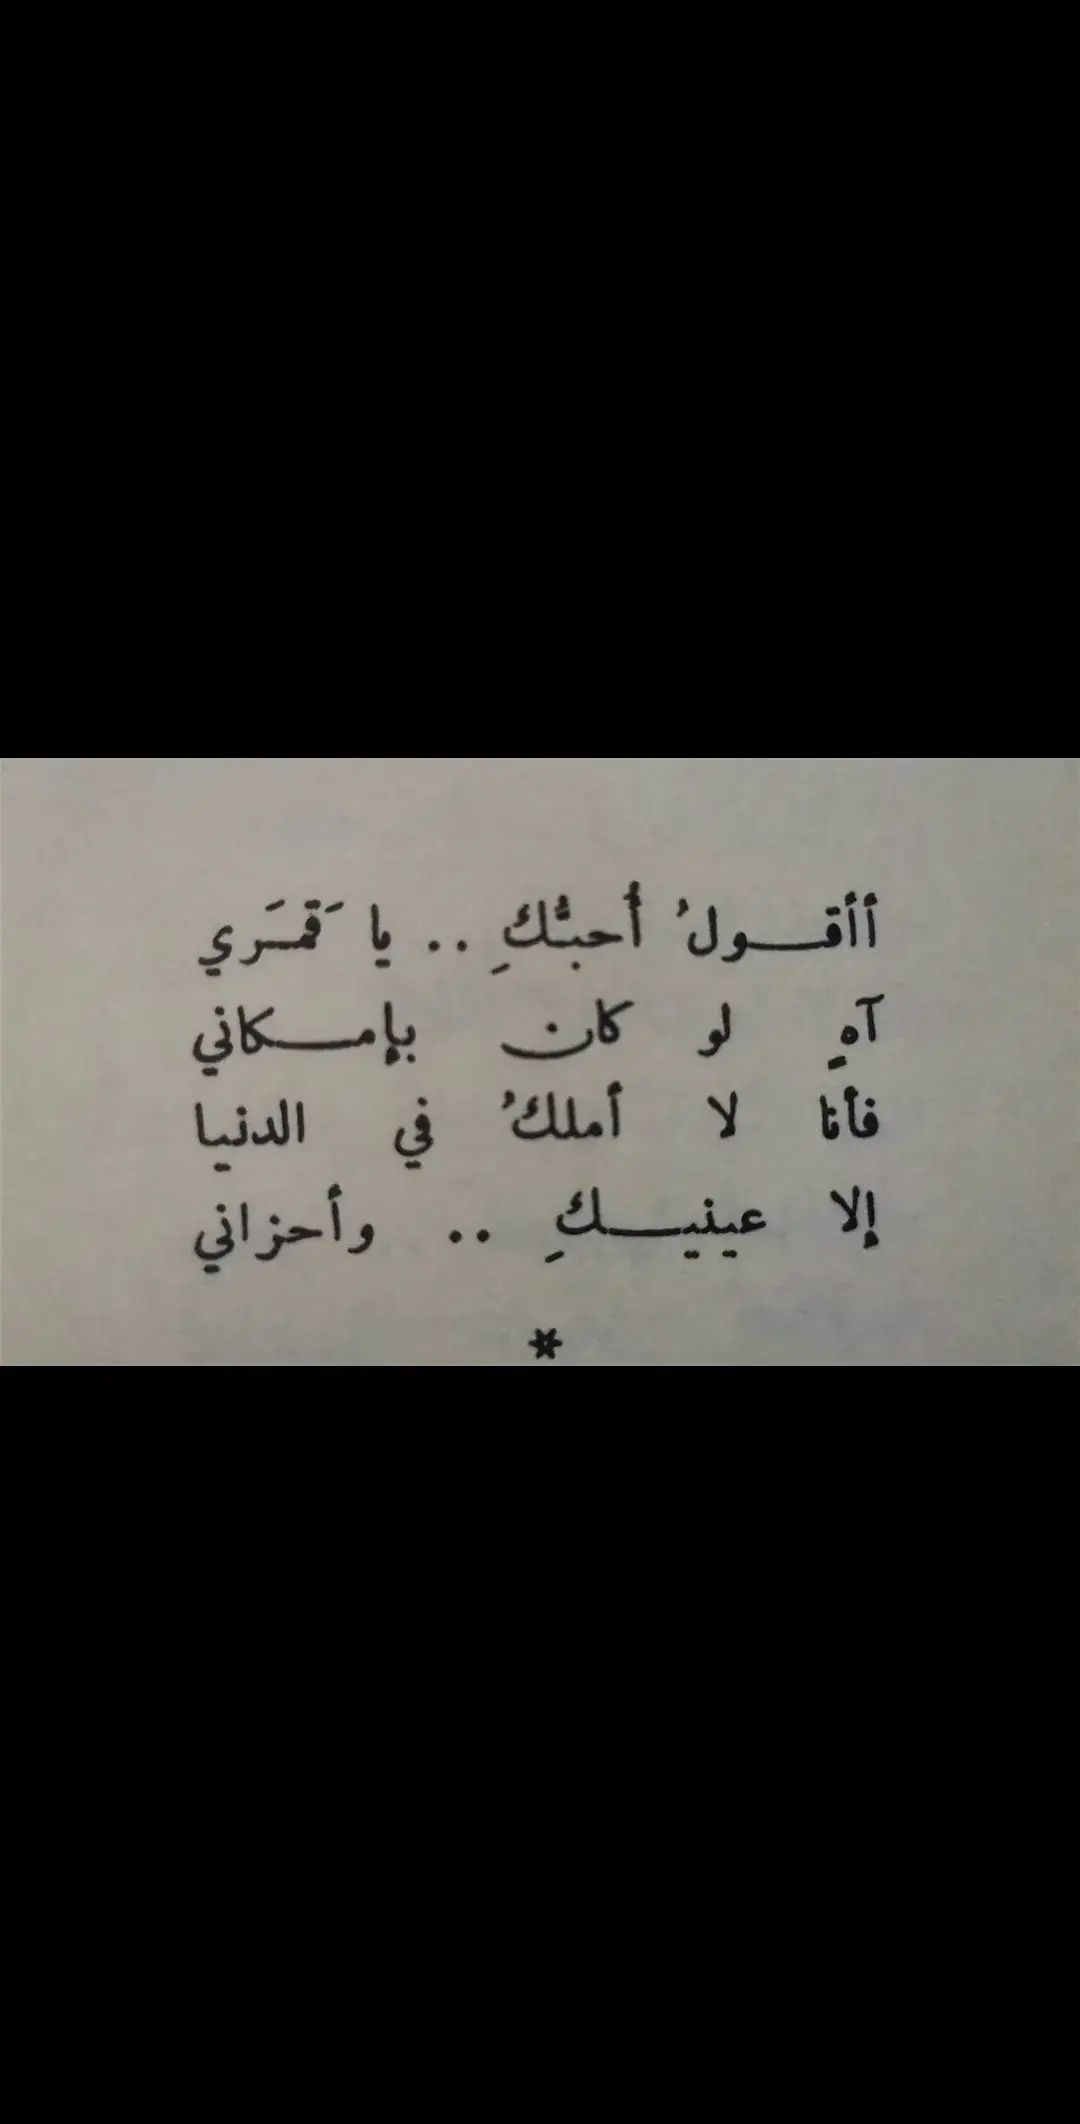 أأقـــولُ أُحبُّكِ .. يا قَمـَري
آهِ لو كان بإمـــكاني
فأنا لا أملكُ في الدنيا
إلا عينيـــكِ .. وأحزاني
*